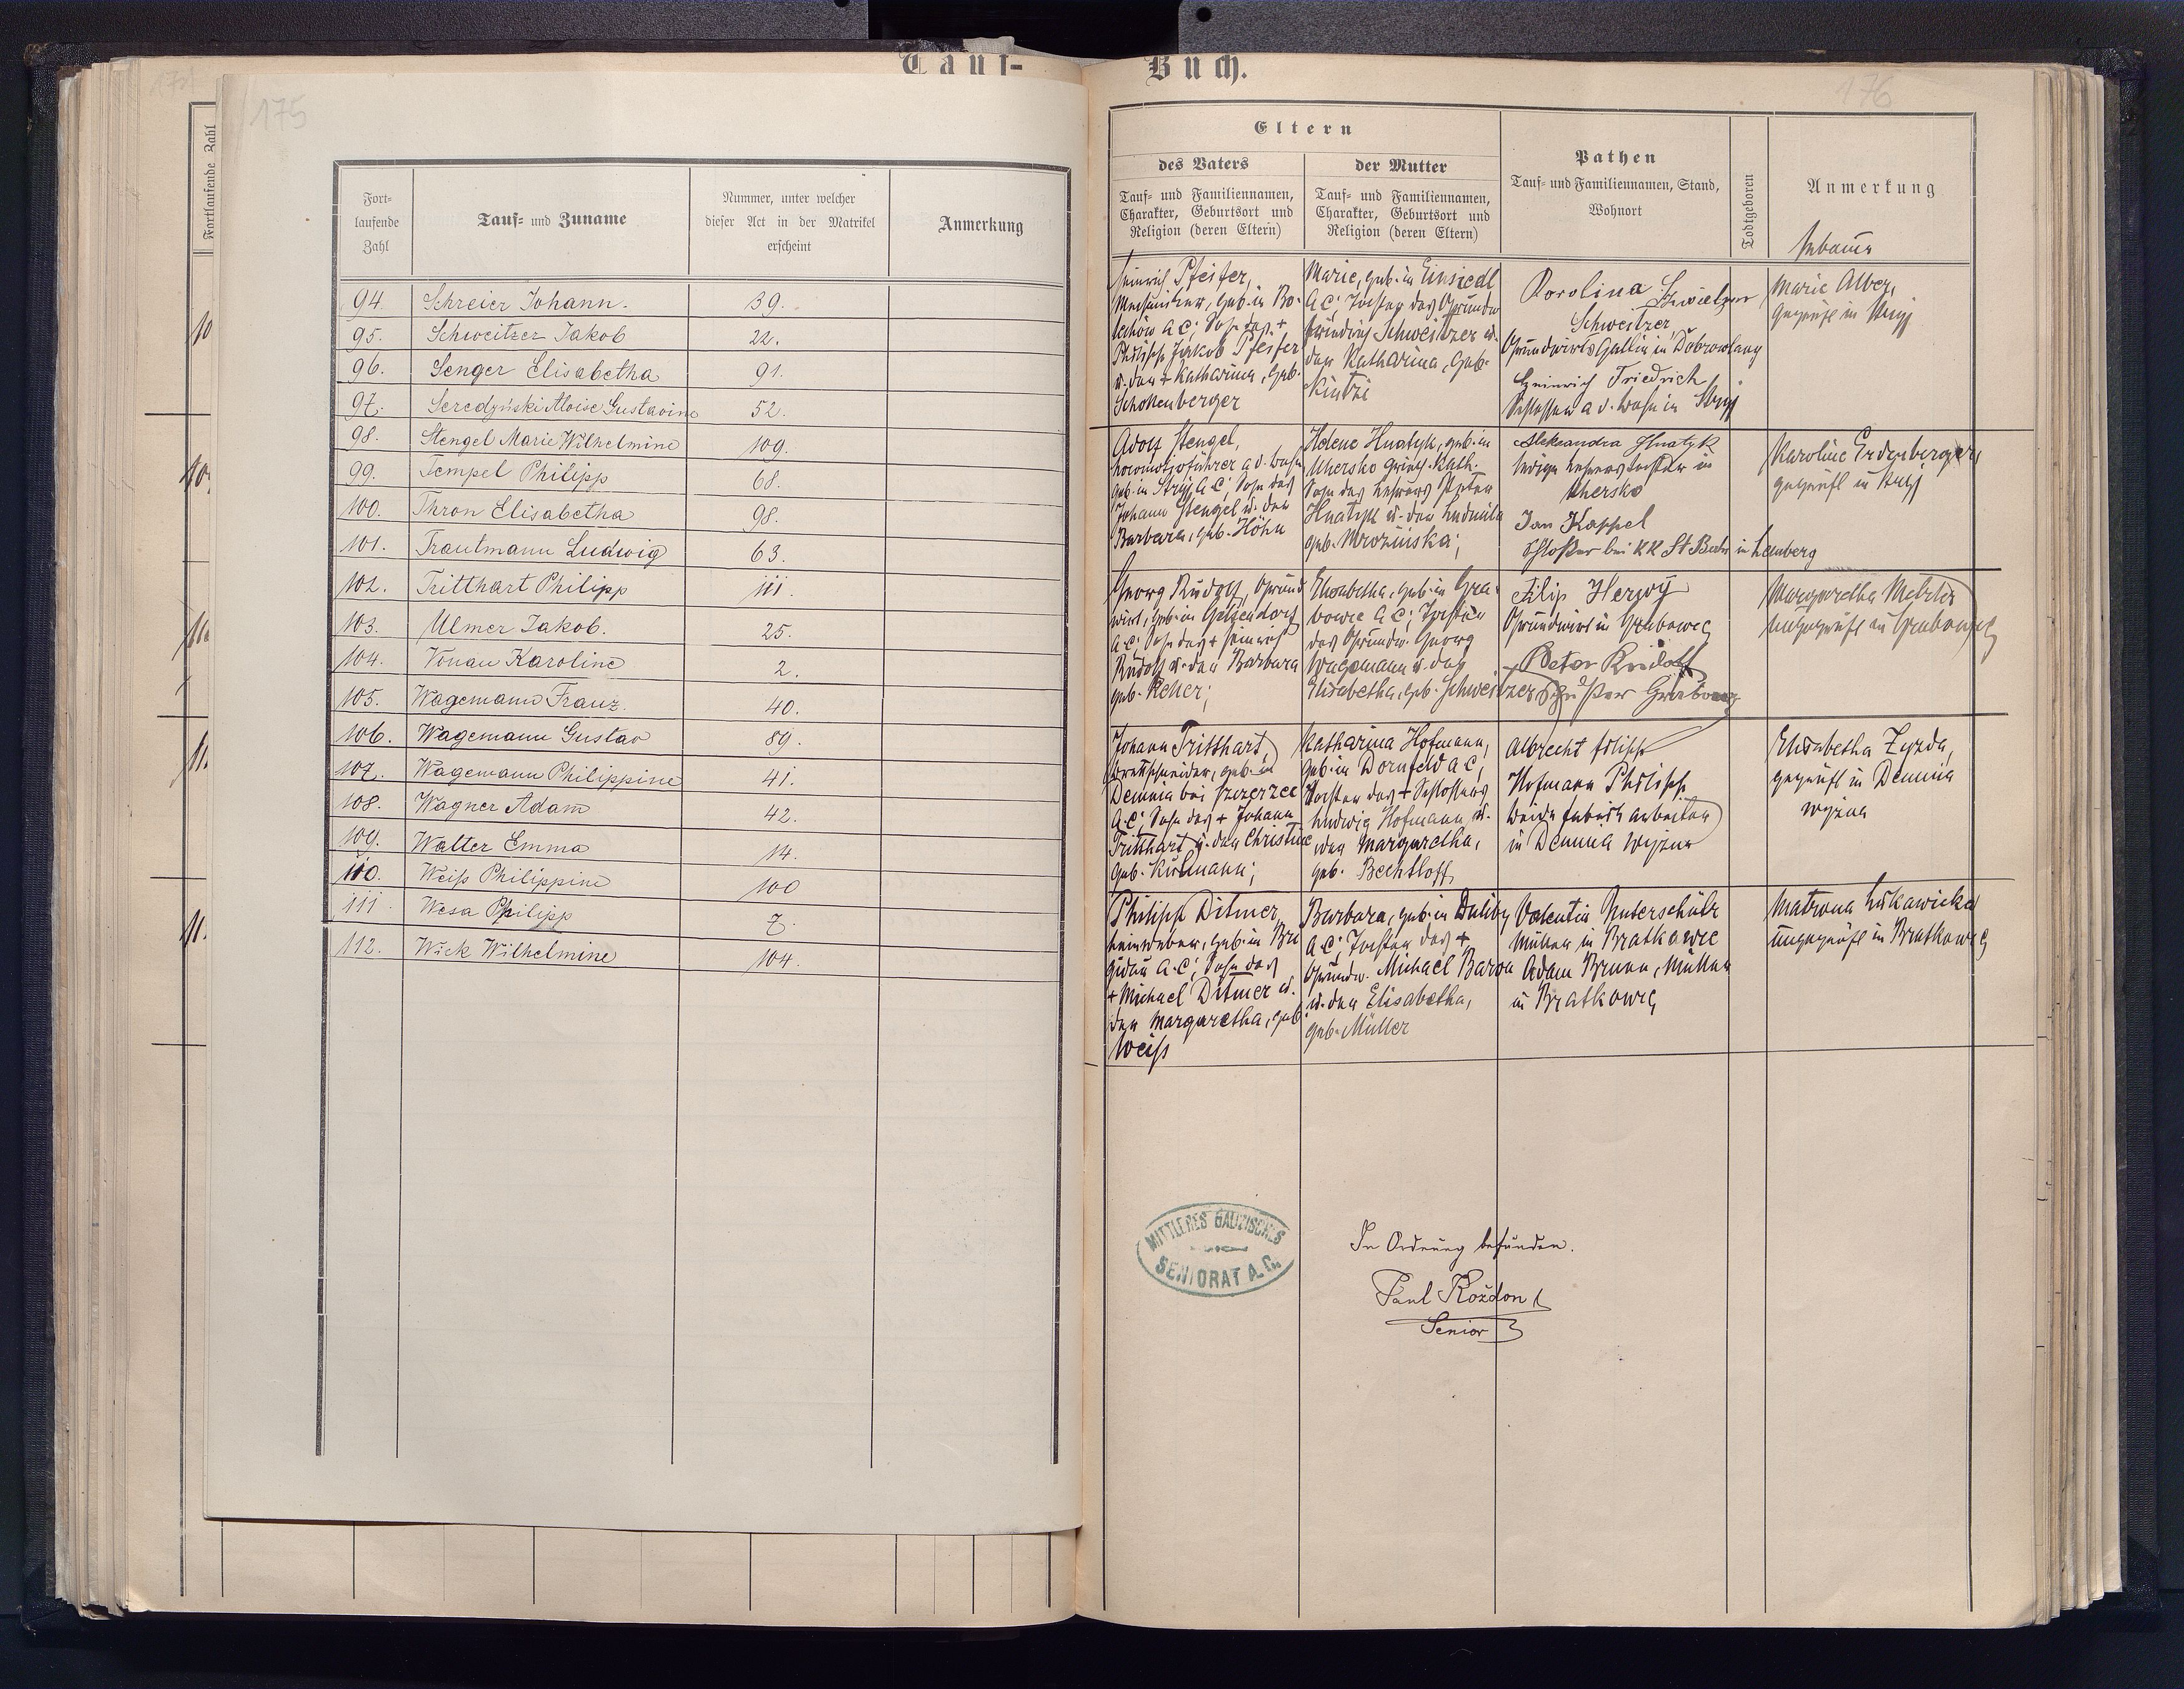 Tauf-
175
Fort-
laufende
Zahl
Tauf- und Zuname
Nummer, unter welcher
dieser Act in der Matrikel
erscheint
Anmerkung
94. Schreier Johann. 39.
95. Schweitzer Jakob 22.
96. Senger Elisabetha 91.
97. Seredyński Aloise Gustavine 52.
98. Stengel Marie Wilhelmine 109.
99. Tempel Philipp 68.
100. Thron Elisabetha 98.
101. Trautmann Ludwig 63.
102. Tritthart Philipp 111.
103. Ulmer Jakob. 25.
104. Vonau Karoline 2.
105. Wagemann Franz. 40.
106. Wagemann Gustav 89.
107. Wagemann Philippine 41.
108. Wagner Adam 42.
109. Walter Emma 14.
110. Weiß Philippine 100
111. Wesa Philipp 7.
112. Wick Wilhelmine 104.
Fortlaufende Zahl
Buch.
176
Eltern
des Vaters
Tauf- und Familiennamen,
Charakter, Geburtsort und
Religion (deren Eltern)
der Mutter
Tauf- und Familiennamen,
Charakter, Geburtsort und
Religion (deren Eltern)
Pathen
Tauf- und Familiennamen, Stand,
Wohnort
Todtgeboren
Anmerkung
Hebamme
Heinrich Pfeifer,
geb. in Bo-
lechów A.C; Sohn des +
Philipp Jakob Pfeifer
u. der + Katharina, geb.
Schollenberger
Marie, geb. in Einsiedl
A.C; Tochter des Grundw
Schweitzer u.
der Katharina, geb.
Kintzi
Karolina
Schweitzer
Grundwirts Gattin in
Heinrich Friedrich
Schlosser a d. Bahn in Stryj
Marie Alber,
geprüft in Stryj
Adolf Stengel,
Locomotivführer a d. Bahn
geb. in Stryj A.C; Sohn des
Johann Stengel u. der
Barbara, geb. Höhn
Helene Hnatyk, geb. in
Uhersko griech. kath.
des Lehrers Peter
Hnatyk u. der Ludmila
geb. Mrozinska;
Aleksandra Hnatyk
ledige Lehrerstochter in
Uhersko
Jan Kappel
Schloßer bei KK St Bahn in Lemberg
Karoline Erdenberger,
geprüft in Stryj
Georg Rudolf, Grund
wirt, geb. in Gelsendorf
A.C; Sohn des + Heinrich
Rudolf u. der Barbara
geb. Keller;
Elisabetha, geb. in Gra-
bowce A C; Tochter
des Grundw. Georg
Wagemann u. der
Elisabetha, geb. Schweitzer
Filip Herzog
Grundwirt in Grabowce
Peter Rudolf
Schuster Grabowce
Margaretha
ungeprüft in Grabowce
Johann Tritthart,
Brettschneider, geb. in
Demnia bei Szczerzec
A.C; Sohn des + Johann
Tritthart u. der Christine
geb. Kurlmann;
Katharina Hofmann,
geb. in Dornfeld A C;
Tochter des + Schlossers
Ludwig Hofmann, u.
der Margaretha,
geb. Bechtloff,
Albrecht Filipp
Hofmann Philipp
in Demnia wyżna
Elisabetha Zyzda,
geprüft in Demnia
wyżna
Philipp Ditmer,
Leinweber, geb. in Bri
gidau A.C; Sohn des
+ Michael Ditmer u.
der Margaretha, geb.
Weiß
Barbara, geb. in Duliby
A.C; Tochter des +
Grundw. Michael Baron
u. der Elisabetha,
geb. Müller
Valentin Unterschütz
Müller in Bratkowce
Adam Brunn, Müller
in Bratkowce
Matrona Lukawicka
ungeprüft in Bratkowce
MITTLERES GALIZISCHES
SENIORAT A.C.
In Ordnung befunden.
Paul Roždon
Senior